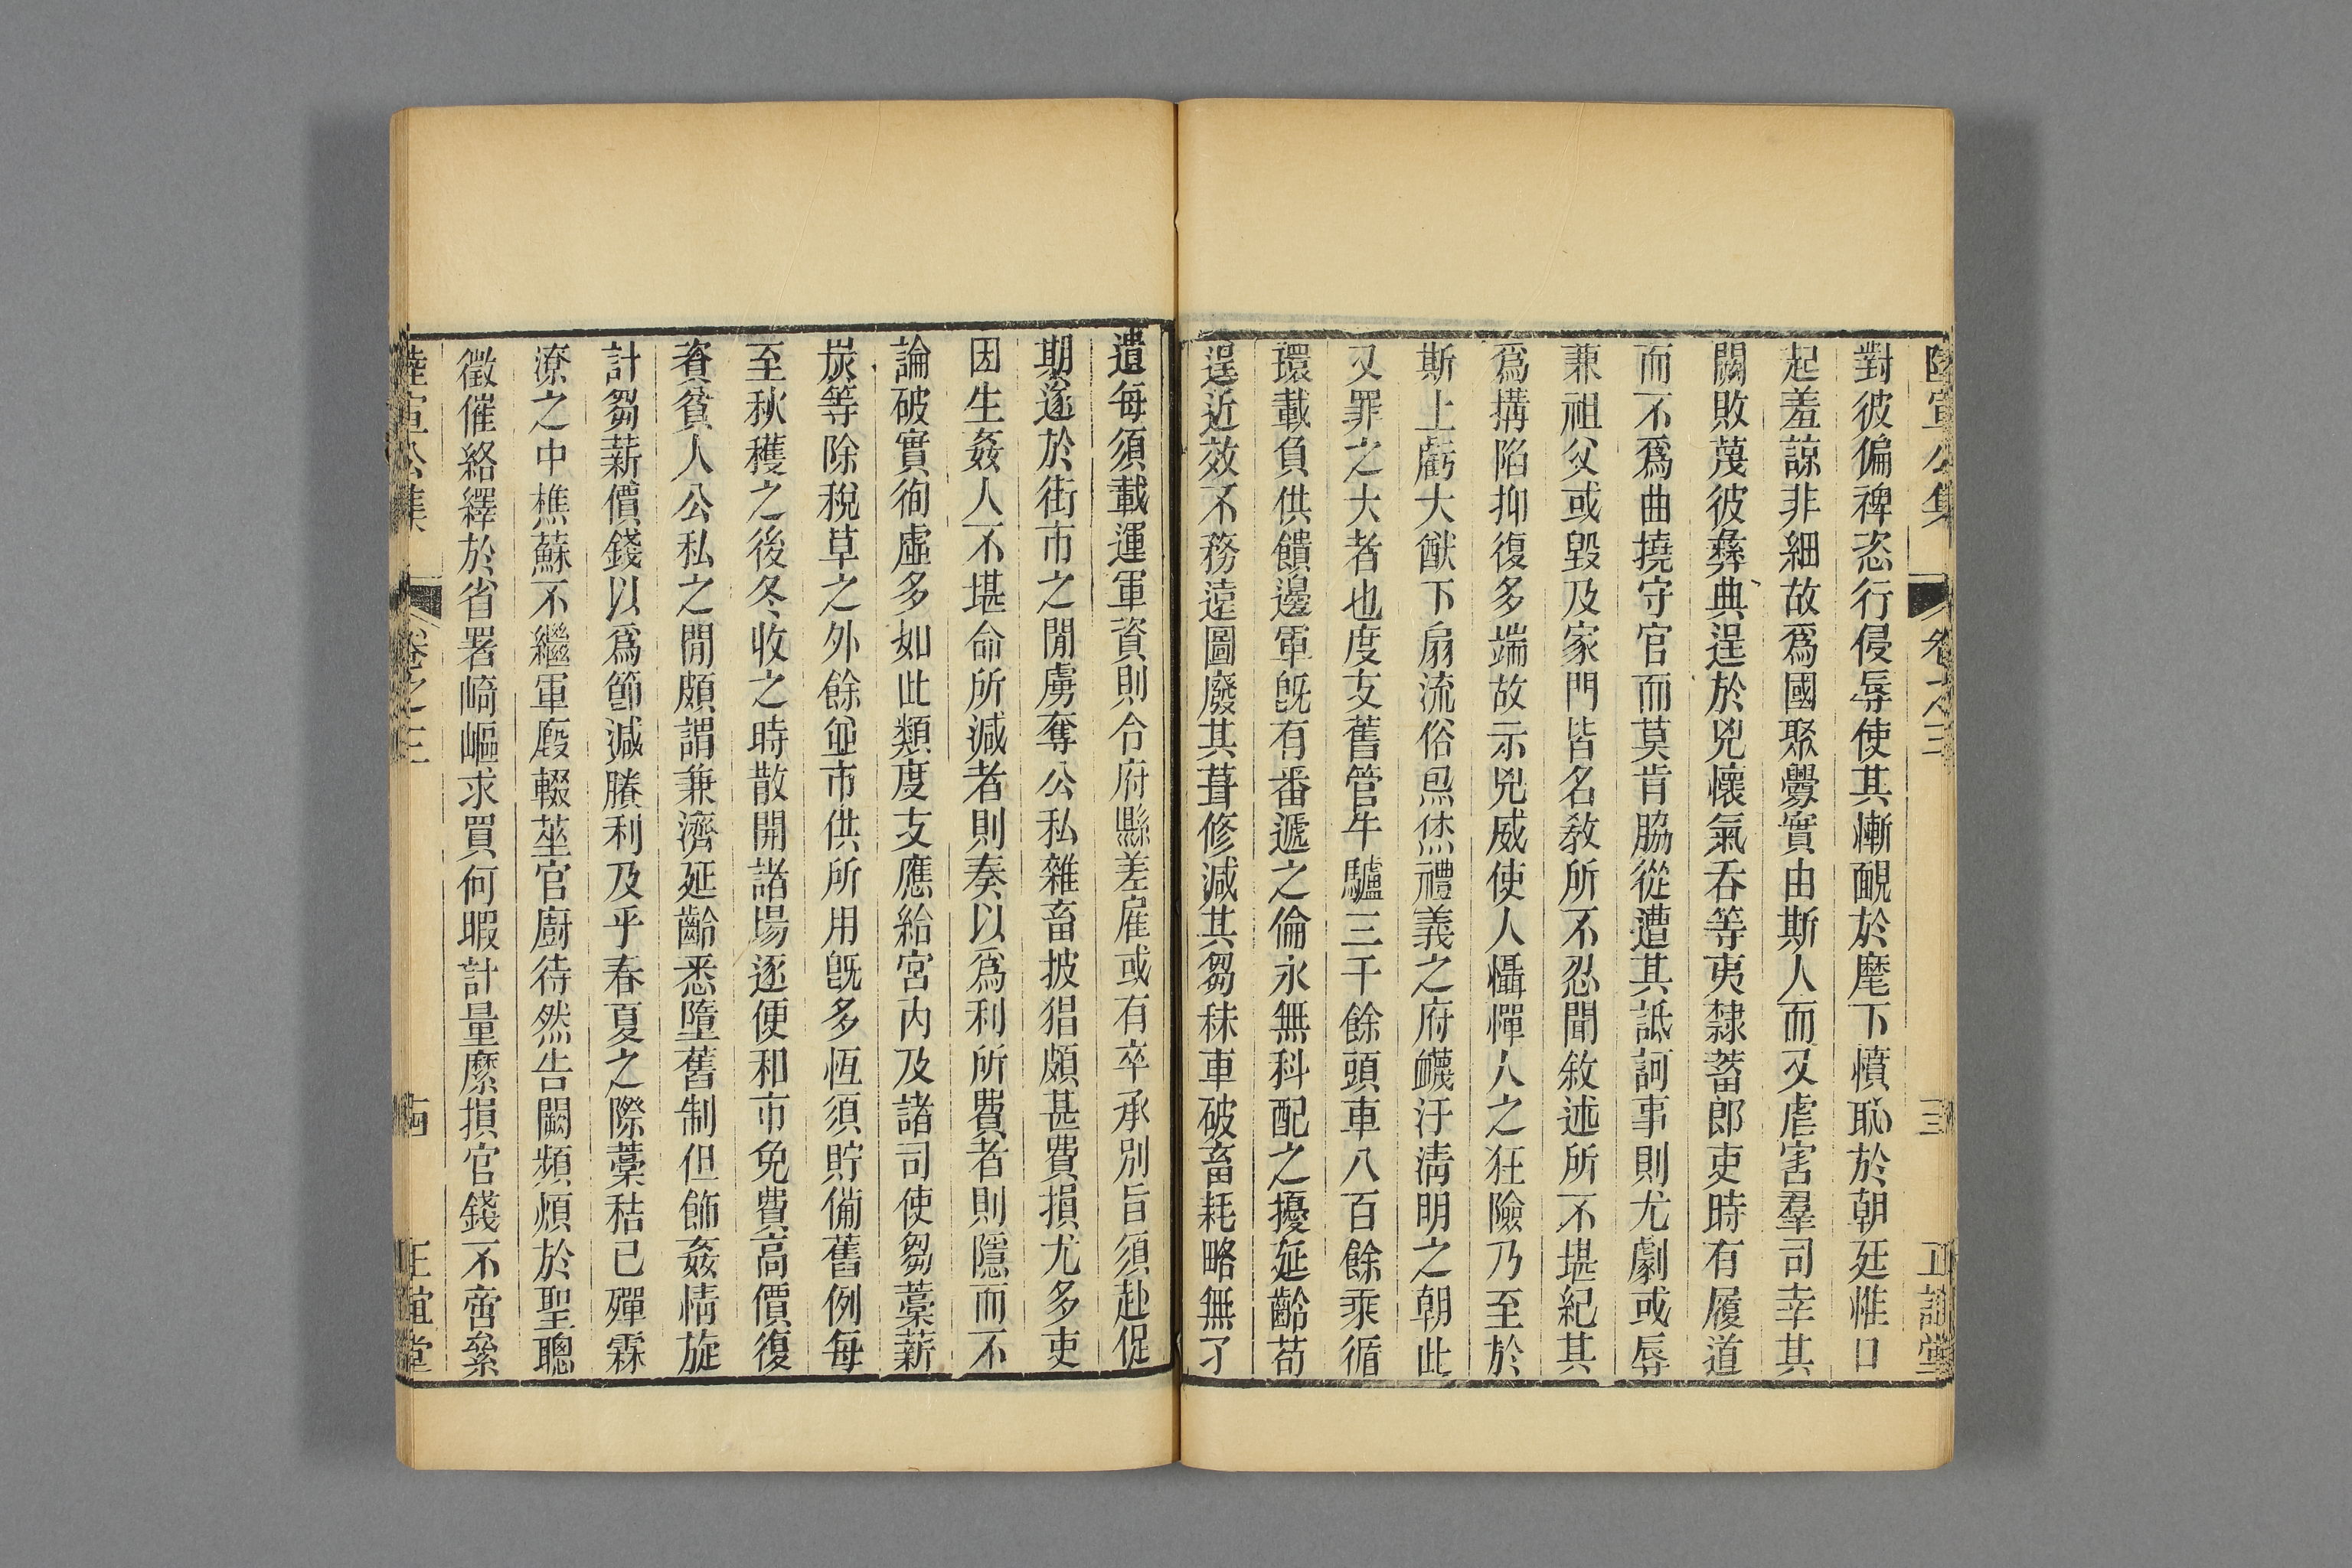 陸宣公集 卷之三 三 正誼堂
對彼偏裨恣行侵辱使其慚靦於麾下憤恥於朝廷惟口
起羞諒非細故爲國聚釁實由斯人而又虐害羣司幸其
闕敗蔑彼彝典逞於兇懷氣吞等夷隸蓄郎吏時有履道
而不爲曲撓守官而莫肯脇從遭其詆訶事則尤劇或辱
兼祖父或毀及家門皆名敎所不忍聞敘述所不堪紀其
爲搆陷抑復多端故示兇威使人懾憚人之狂險乃至於
斯上虧大猷下扇流俗炰烋禮義之府衊汙淸明之朝此
又罪之大者也度支舊管牛驢三千餘頭車八百餘乘循
環載負供饋邊軍旣有番遞之倫永無科配之擾延齡苟
逞近效不務遠圖廢其葺修減其芻秣車破畜耗略無孑
遺每須載運軍資則令府縣差雇或有卒承別旨須赴促
期遂於街市之閒虜奪公私雜畜披猖頗甚費損尤多吏
因生姦人不堪命所減者則奏以爲利所費者則隱而不
論破實徇虛多如此類度支應給宮內及諸司使芻藁薪
炭等除稅草之外餘並市供所用旣多恆須貯備舊例每
至秋穫之後冬收之時散開諸場逐便和市免費高價復
資貧人公私之閒頗謂兼濟延齡悉墮舊制但飾姦情旋
計芻薪價錢以爲節減賸利及乎春夏之際藁秸已殫霖
潦之中樵蘇不繼軍廄輟莝官廚待然告闕頻煩於聖聰
徵催絡繹於省署崎嶇求買何暇計量縻損官錢不啻絫
陸宣公集 卷之三 四 正誼堂